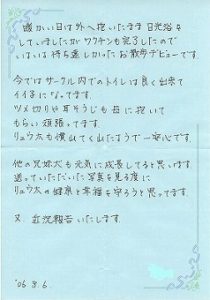 暖かい日は外へ抱いたまま日光浴を
していましたがワクチンも完了したので
いよいよ待ち遠しかったお散歩デビューです。
今ではサークル内でのトイレは良く出来て
イイ子になってます。
ツメ切りや耳そうじも母に抱いて
もらい頑張ってます。
リュウ太も慣れてくれたようで一安心です。
他の兄妹犬も元気に成長してると思います。
送っていただいた写真を見る度に
リュウ太の健康と幸福を守ろうと思ってます。
又、近況報告いたします。
'06.3.6.